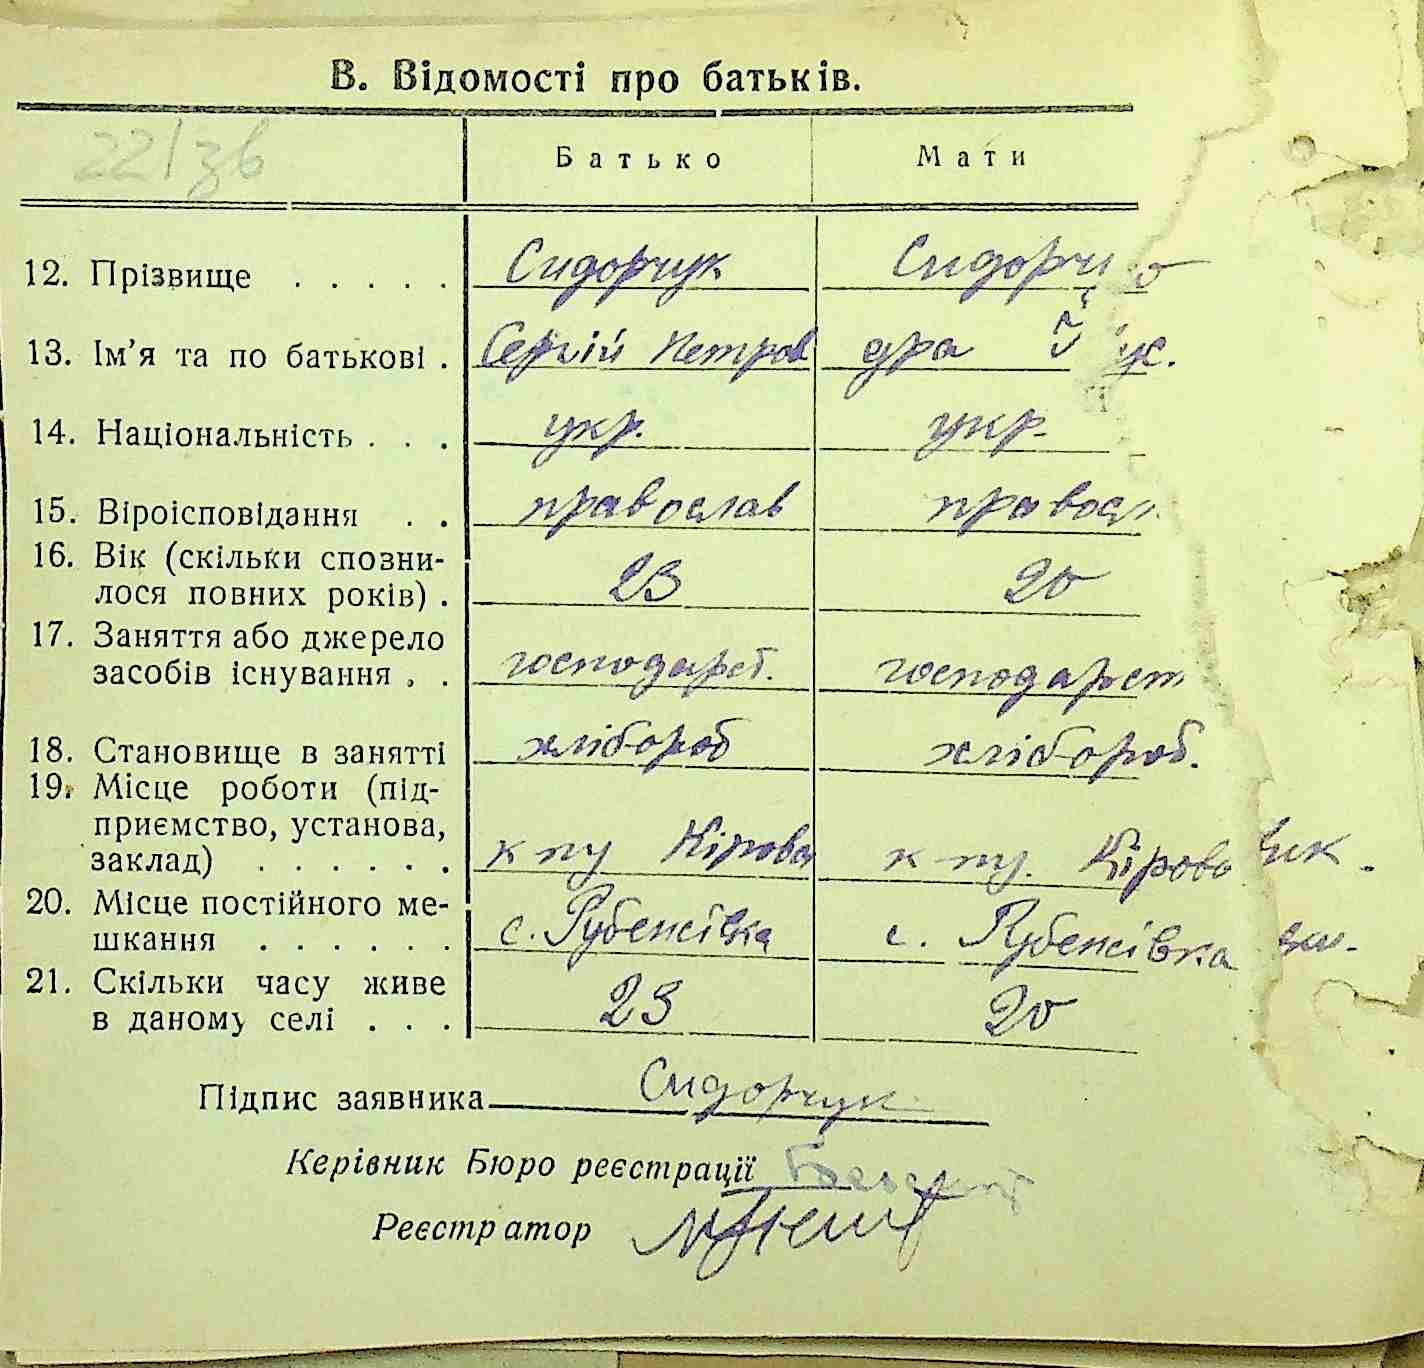 В. Відомості про батьків.
22/зв
Батько Мати
12. Прізвище . . . . . Сидорчук Сидорчу
13. Ім'я та по батькові . Сергій Петров дра
14. Національність . . . укр. укр.
15. Віроісповідання . . православ правосл
16. Вік (скільки спозни-
лося повних років) . 23 20
17. Заняття або джерело
засобів існування . . господарст. господарст
18. Становище в занятті хлібороб хлібороб.
19. Місце роботи (під-
приємство, установа,
заклад) . . . . . . Кірова Кірова
20. Місце постійного ме-
шкання . . . . . . с. Рубежівка с. Рубежівка
21. Скільки часу живе
в даному селі . . . 23 20
Підпис заявника Сидорчук
Керівник Бюро реєстрації
Реєстратор